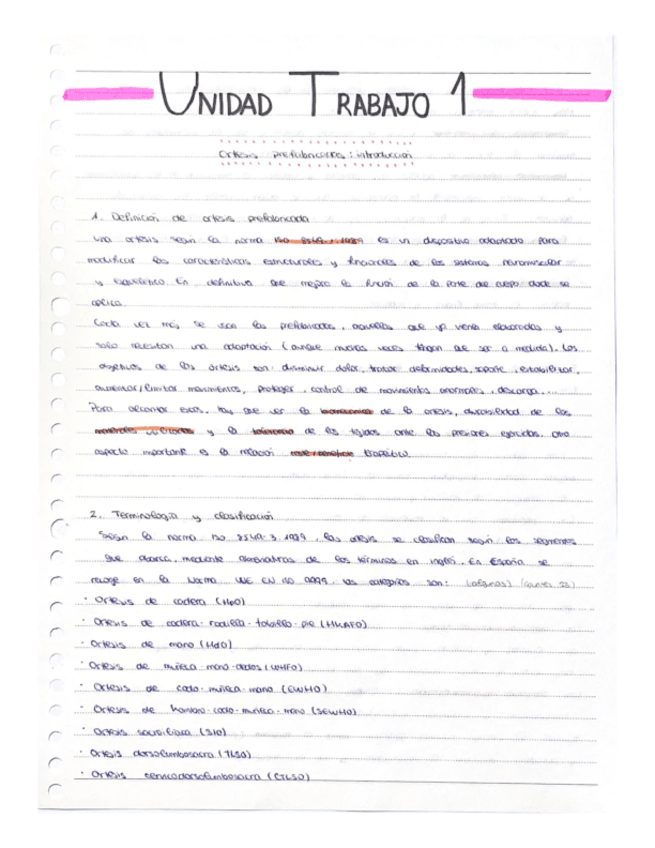 UNIDAD TRABAJO 1
Ortesis prefabricadas: introducción
1. Definición de ortesis prefabricada
Una ortesis según la norma ISO 8549:1989 es un dispositivo adaptado para
modificar las características estructurales y funcionales de los sistemas neuromuscular
y esquelético. En definitiva que mejora la función de la parte del cuerpo donde se
aplica.
Cada vez más se usan las prefabricadas, aquellas que ya viene elaboradas y
solo necesitan una adaptación (aunque muchas veces tengan que ser a medida). Los
objetivos de las órtesis son: disminuir dolor, tratar deformidades, soporte, estabilizar,
aumentar/limitar movimientos, proteger, control de movimientos anormales, descarga...
Para alcanzar esos, hay que ver la biomecánica de la ortesis, durabilidad de los
materiales utilizados y la tolerancia de los tejidos ante las presiones ejercidas. Otro
aspecto importante es la relación coste/beneficio terapéutico.
2. Terminología y clasificación
Según la norma ISO 8549-3:1989, las ortesis se clasifican según los segmentos
que abarca, mediante de los términos en inglés. En España se
recoge en la Norma UNE EN ISO 9999. Las categorías son: (algunas)
· Ortesis de cadera (HpO)
· Ortesis de cadera-rodilla-tobillo-pie (HKAFO)
· Ortesis de mano (HdO)
· Ortesis de muñeca-mano-dedos (WHFO)
· Ortesis de codo-muñeca-mano (EWHO)
· Ortesis de hombro-codo-muñeca-mano (SEWHO)
· Ortesis sacroilíaca (SIO)
· Ortesis dorsolumbosacra (TLSO)
· Ortesis cervicodorsolumbosacra (CTLSO)